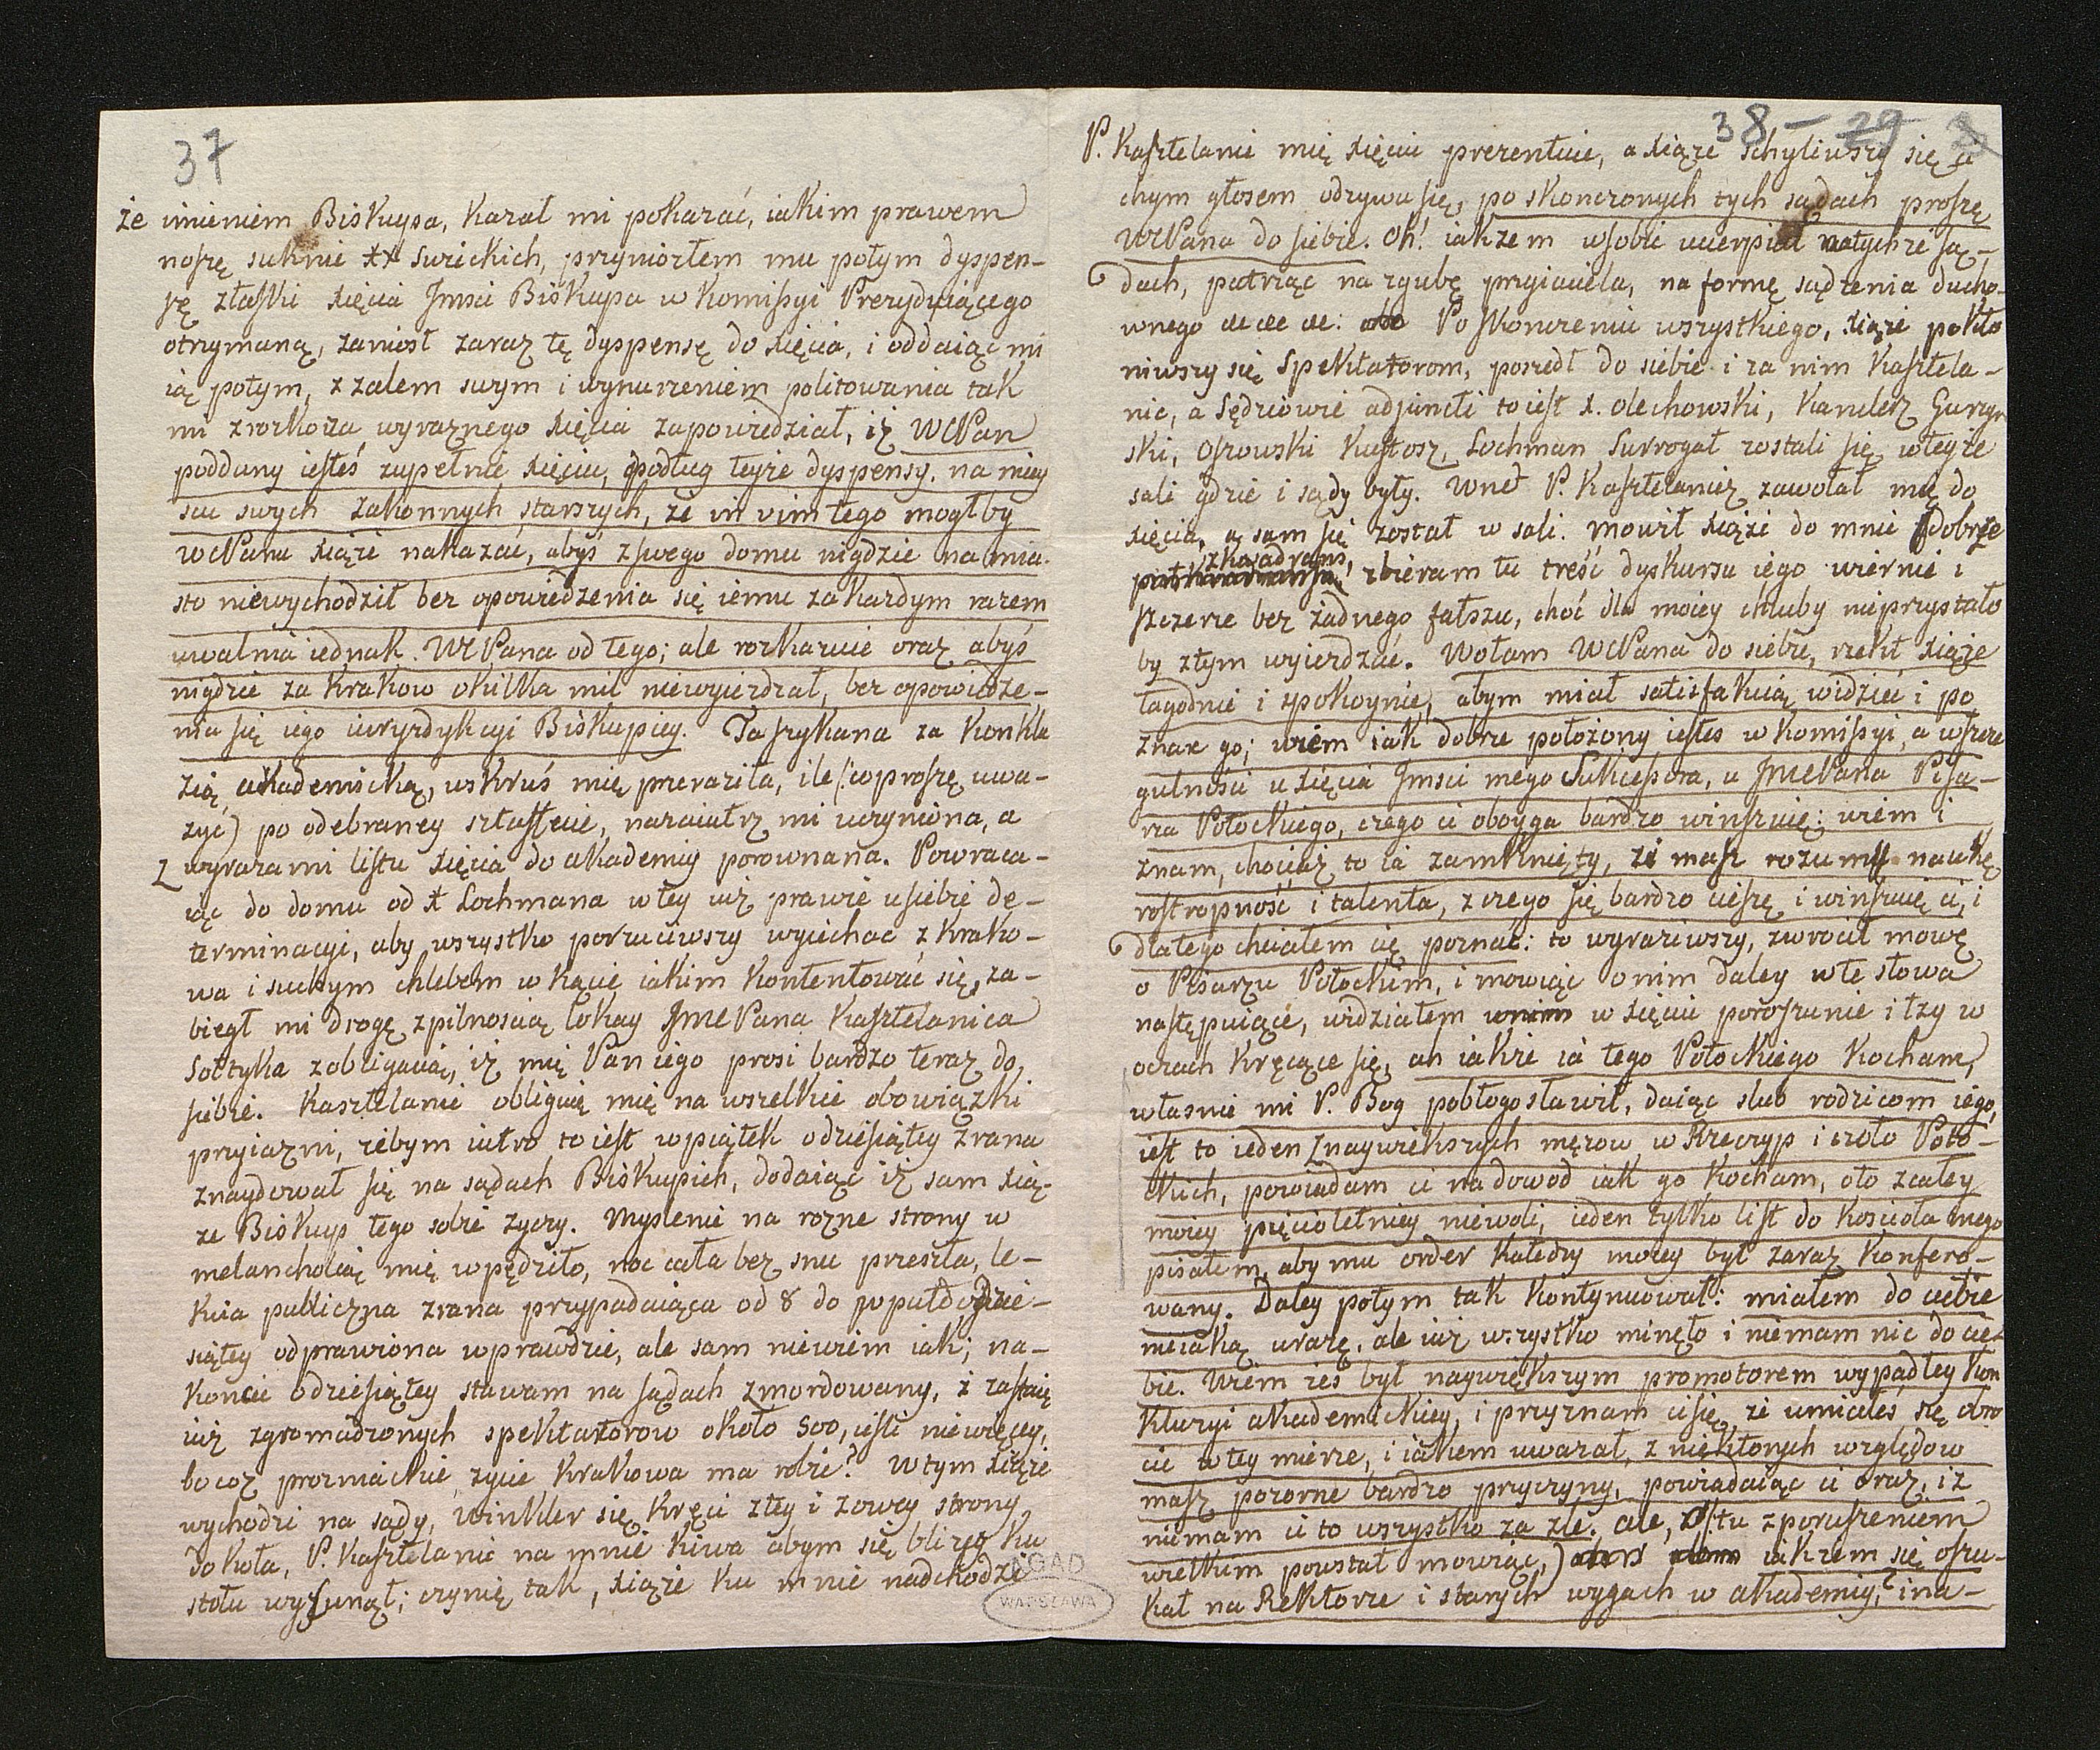 37
że imieniem Biskupa, kazał mi pokazać, iakim prawem
noszę suknie XX Swieckich, przyniozłem mu potym dyspen-
sę złaski Xięcia Jmsci Biskupa w Komissyi Prezyduiącego
otrzymaną, zaniosł zaraz tę dyspensę do Xięcia, i oddaiąc mi
ią potym, z zalem swym i wynurzeniem politowania tak
mi z rozkazu wyraznego Xięcia zapowiedział, iż WCPan
poddany iesteś zupełnie Xięciu, podług teyże dyspensy, na miey
scu swych Zakonnych starszych, że in vim tego mogłby
WCPanu Xiąże nakazać, abyś z swego domu nigdzie na mia-
sto niewychodził bez opowiedzenia się iemu za każdym razem
uwalnia iednak WCPana od tego; ale rozkazuie oraz abyś
nigdzie za Krakow o kilka mil niewyiezdzał, bez opowiedze-
nia się iego iuryzdykcyi Biskupiey. Ta szykana za konklu
zią akademicką, wskruś mię przeraziła, ile (: co proszę uwa-
żyć) po odebraney sztafecie, nazaiutrz mi uczyniona, a
z wyrazami listu Xięcia do akademiy porownana. Powraca-
iąc do domu od X Lochmana w tey iuż prawie u siebie de-
terminacyi, aby wszystko porzuciwszy wyiechac z Krako-
wa i suchym chlebem w kącie iakim kontentować się, za-
biegł mi drogę z pilnoscią lokay JmcPana Kasztelanica
Sołtyka z obligacią, iż mię Pan iego prosi bardzo teraz do
siebie. Kasztelanic obliguię mię na wszelkie obowiązki
przyiazni, żebym iutro to iest w piątek o dziesiątey z rana
znaydował się na sądach Biskupich, dodaiąc iż sam Xią-
że Biskup tego sobie zyczy. Myslenie na rozne strony w
melancholią mię wpędziło, noc cała bez snu przeszła, le-
kcia publiczna zrana przypadaiąca od 8 do w puł do dzie-
siątey odprawiona wprawdzie, ale sam niewiem iak; na-
koniec o dziesiątey stawam na sądach zmordowany, i zastaię
iuż zgromadzonych spektatorow około 500, iesli niewięcey,
bo coż prozniackie zycie Krakowa ma robić? W tym Xiąże
wychodzi na sądy, Winkler się kręci z tey i z owey strony
dokoła, P. Kasztelanic na mnie kiwa abym się bliżey ku
stołu wysunął; czynię tak, Xiąże ku mnie nadchodzi
AGAD
WARSZAWA
38 - 29
P. Kasztelanic mię Xięciu prezentuie, a Xiąże schyliwszy się ci
chym głosem odzywa się, po skonczonych tych sądach proszę
WCPana do siebie. Oh! iakzem w sobie ucierpiał na tychże są-
dach, patrząc na zgubę przyiaciela, na formę sądzenia ducho-
wnego &c &c &c: Po skonczeniu wszystkiego, Xiąże pokło
niwszy się Spektatorom, poszedł do siebie i za nim Kasztela-
nic, a Sędziowie adjuncti to iest X. Olechowski, Kanclerz Gurzyn
ski, Ossowski Kustosz, Lochman Surrogat zostali się w teyże
sali gdzie i sądy były. Wnet P. Kasztelanic zawołał mię do
Xięcia, a sam się został w sali. Mowił Xiąże do mnie dobrze
z kwadrans,
zbieram tu treść dyskursu iego wiernie i
szczerze bez żadnego fałszu, choć dla moiey chluby nieprzystało
by z tym wyiezdzać. Wołam WCPana do siebie, rzekł Xiąże
łagodnie i spokoynie, abym miał satisfakcią widzieć i po
znać go; wiem iak dobrze położony iestes w komissyi, a wszcze
gulności u Xięcia Jmsci mego Sukcessora, u JmcPana Pisa-
rza Potockiego, czego ci oboyga bardzo winszuię: wiem i
znam, chociaż to ia zamknięty, że masz rozum, naukę
rostropność i talenta, z czego się bardzo cieszę i winszuię ci, i
dlatego chciałem cię poznać: to wyraziwszy, zwrocił mowę
o Pisarzu Potockim, i mowiąc o nim daley w te słowa
następuiące, widziałem w Xięciu porozrunie i łzy w
oczach kręcące się, ah iakże ia tego Potockiego kocham,
własnie mi P. Bog pobłogosławił, daiąc slub rodzicom iego,
iest to ieden z naywiekszych męzow w Rzeczyp i czoło Poto-
ckich, powiadam ci na dowod iak go kocham, oto z całey
moiey pięcioletniey niewoli, ieden tylko list do kosciola mego
pisałem, aby mu order katedry moiey był zaraz konfero-
wany. Daley potym tak kontynuował: miałem do ciebie
nieiaką urazę, ale iuż wszystko minęło i niemam nic do cie-
bie. Wiem żeś był naywiększym promotorem wypadłey kon
kluzyi akademickiey, i przyznam ci się, że umiałes się obro
cic w tey mierze, i iakem uwazał, z niektorych względow
masz pozorne bardzo przyczyny, powiadaiąc ci oraz, iż
niemam ci to wszystko za złe. Ale, (: tu z poruszeniem
wielkim powstał mowiąc,) iakzem się oszu-
kał na Rektorze i starych wygach w akademiy, ina-